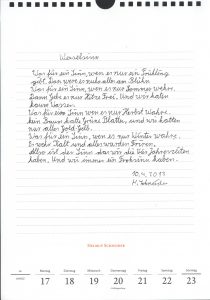 Was für ein Sinn, wen es nur ein Frühling
gibt. Dan were es nuhr allen am Blühn
Was für ein Sinn, wen es nur Sommer wehre.
Dann gebe es nur Hitze Frei. Und wir hatten
kaum Wasser.
Was für ein Sinn, wen es nur Herbst Wahre.
kein Baum hatte Grüne Blatter, und wir hatten
nur alles Gold-Gelb.
Was für ein Sinn, wen es nur Winter wahre.
Es wahr Kalt und alles wurden Frieren.
Also ist der Sinn das wir die vier Jahreszeiten
haben. Und wir immer ein
10.4.2011
H. Schreiber
HELMUT SCHREIBER
Montag Dienstag Mittwoch Donnerstag Freitag Samstag Sonntag
17 18 19 20 21 22 23